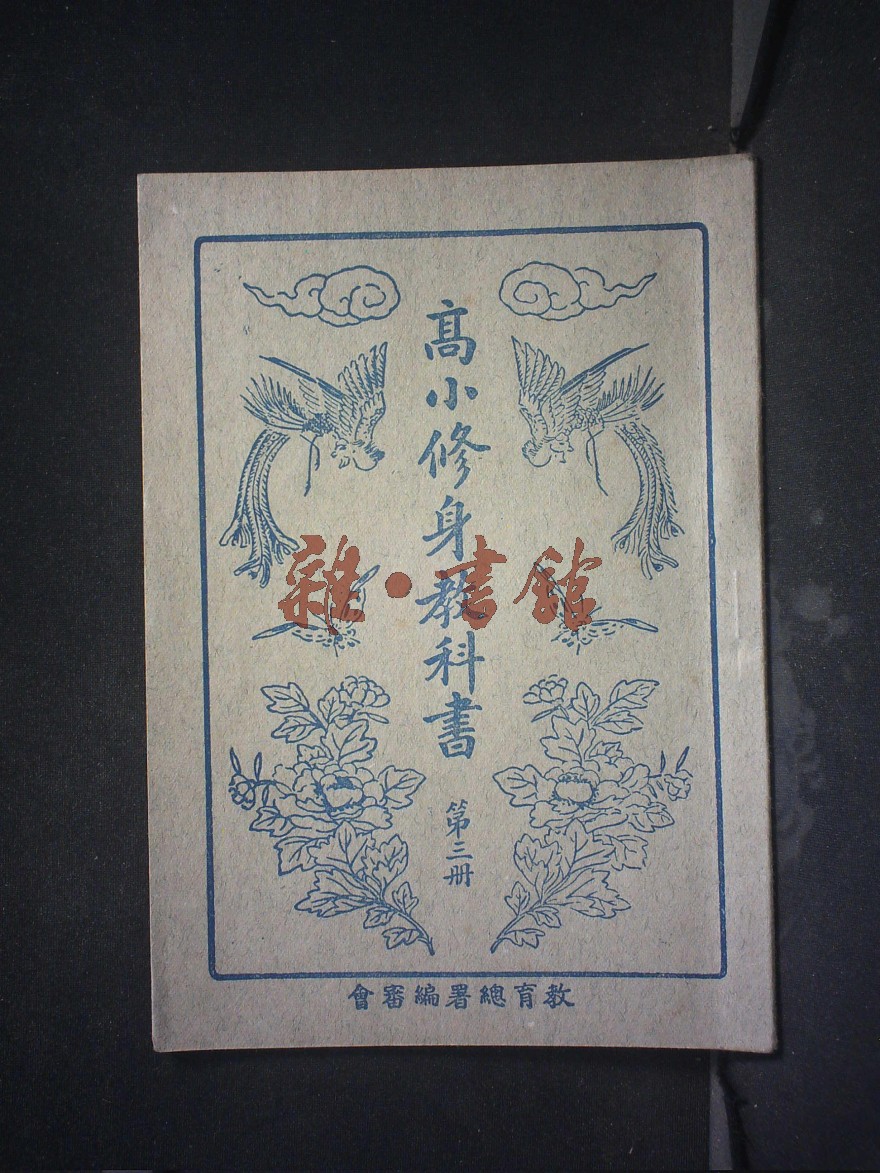 高小修身教科書
第三册
教育總署編審會
雜·書館